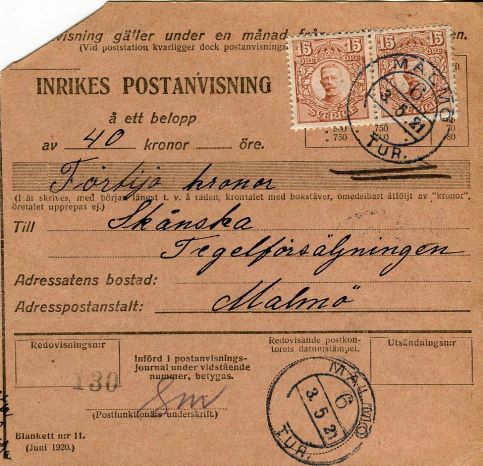 visning gäller under en månad från
en.
(Vid poststation kvarligger dock postanvisning
15 15 15 15
SVERIGE
MALMÖ
6
3.5.21
TUR.
INRIKES POSTANVISNING
å ett belopp
av 40 kronor öre.
500
750 750 750
Förtijo kronor
(Här skrives, med början längst t. v. å raden, krontalet med bokstäver, omedelbart åtföljt av "kronor",
öretalet upprepas ej.)
Till Skånska
Tegelförsäljningen
Adressatens bostad:
Adresspostanstalt: Malmö
Redovisningsn:r
130
Införd i postanvisnings-
journal under vidstående
nummer, betygas.
(Postfunktionärs underskrift.)
Redovisande postkon-
torets datumstämpel.
MALMÖ
6
3.5.21
TUR.
Utsändningsn:r
Blankett n:r 11.
(Juni 1920.)